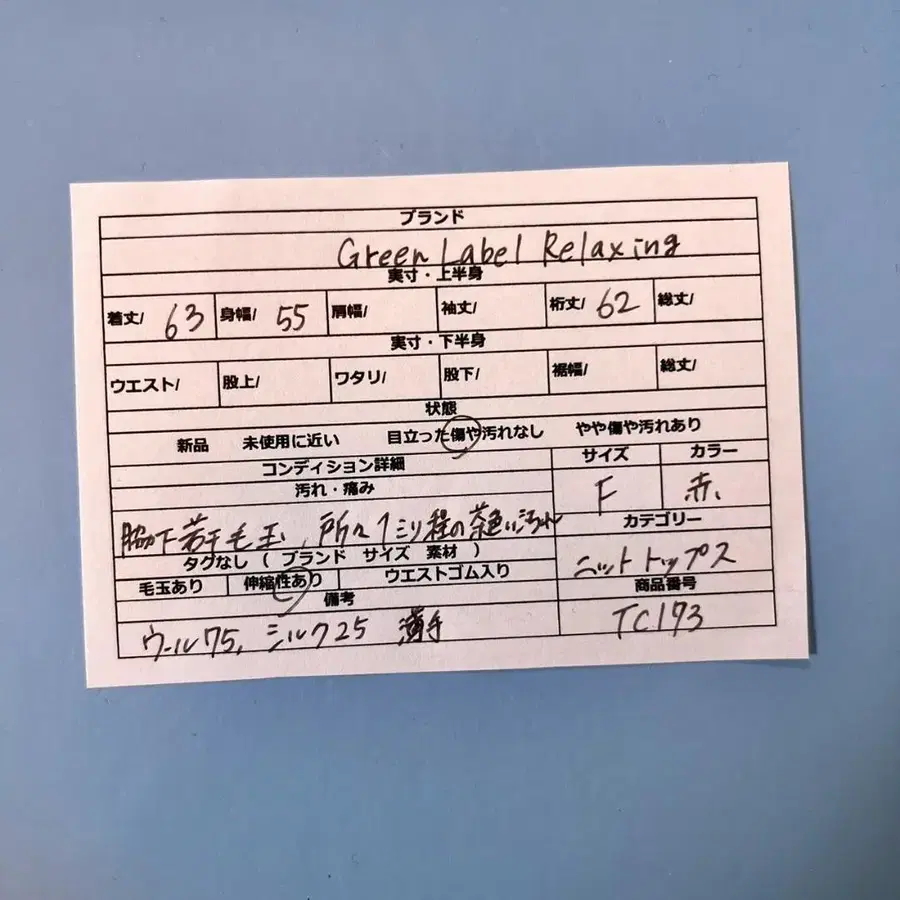 ブランド
Green Label Relaxing
実寸・上半身
着丈/ 63 身幅/ 55 肩幅/ 袖丈/ 裄丈/ 62 総丈/
実寸・下半身
ウエスト/ 股上/ ワタリ/ 股下/ 裾幅/ 総丈/
状態
新品 未使用に近い 目立った傷や汚れなし やや傷や汚れあり
コンディション詳細 サイズ カラー
汚れ・痛み F 赤
脇下若干毛玉、所々1ミリ程の茶色い汚れ カテゴリー
タグなし ( ブランド サイズ 素材 ) ニットトップス
毛玉あり 伸縮性あり ウエストゴム入り 商品番号
備考 TC173
ウール75, シルク25 薄手